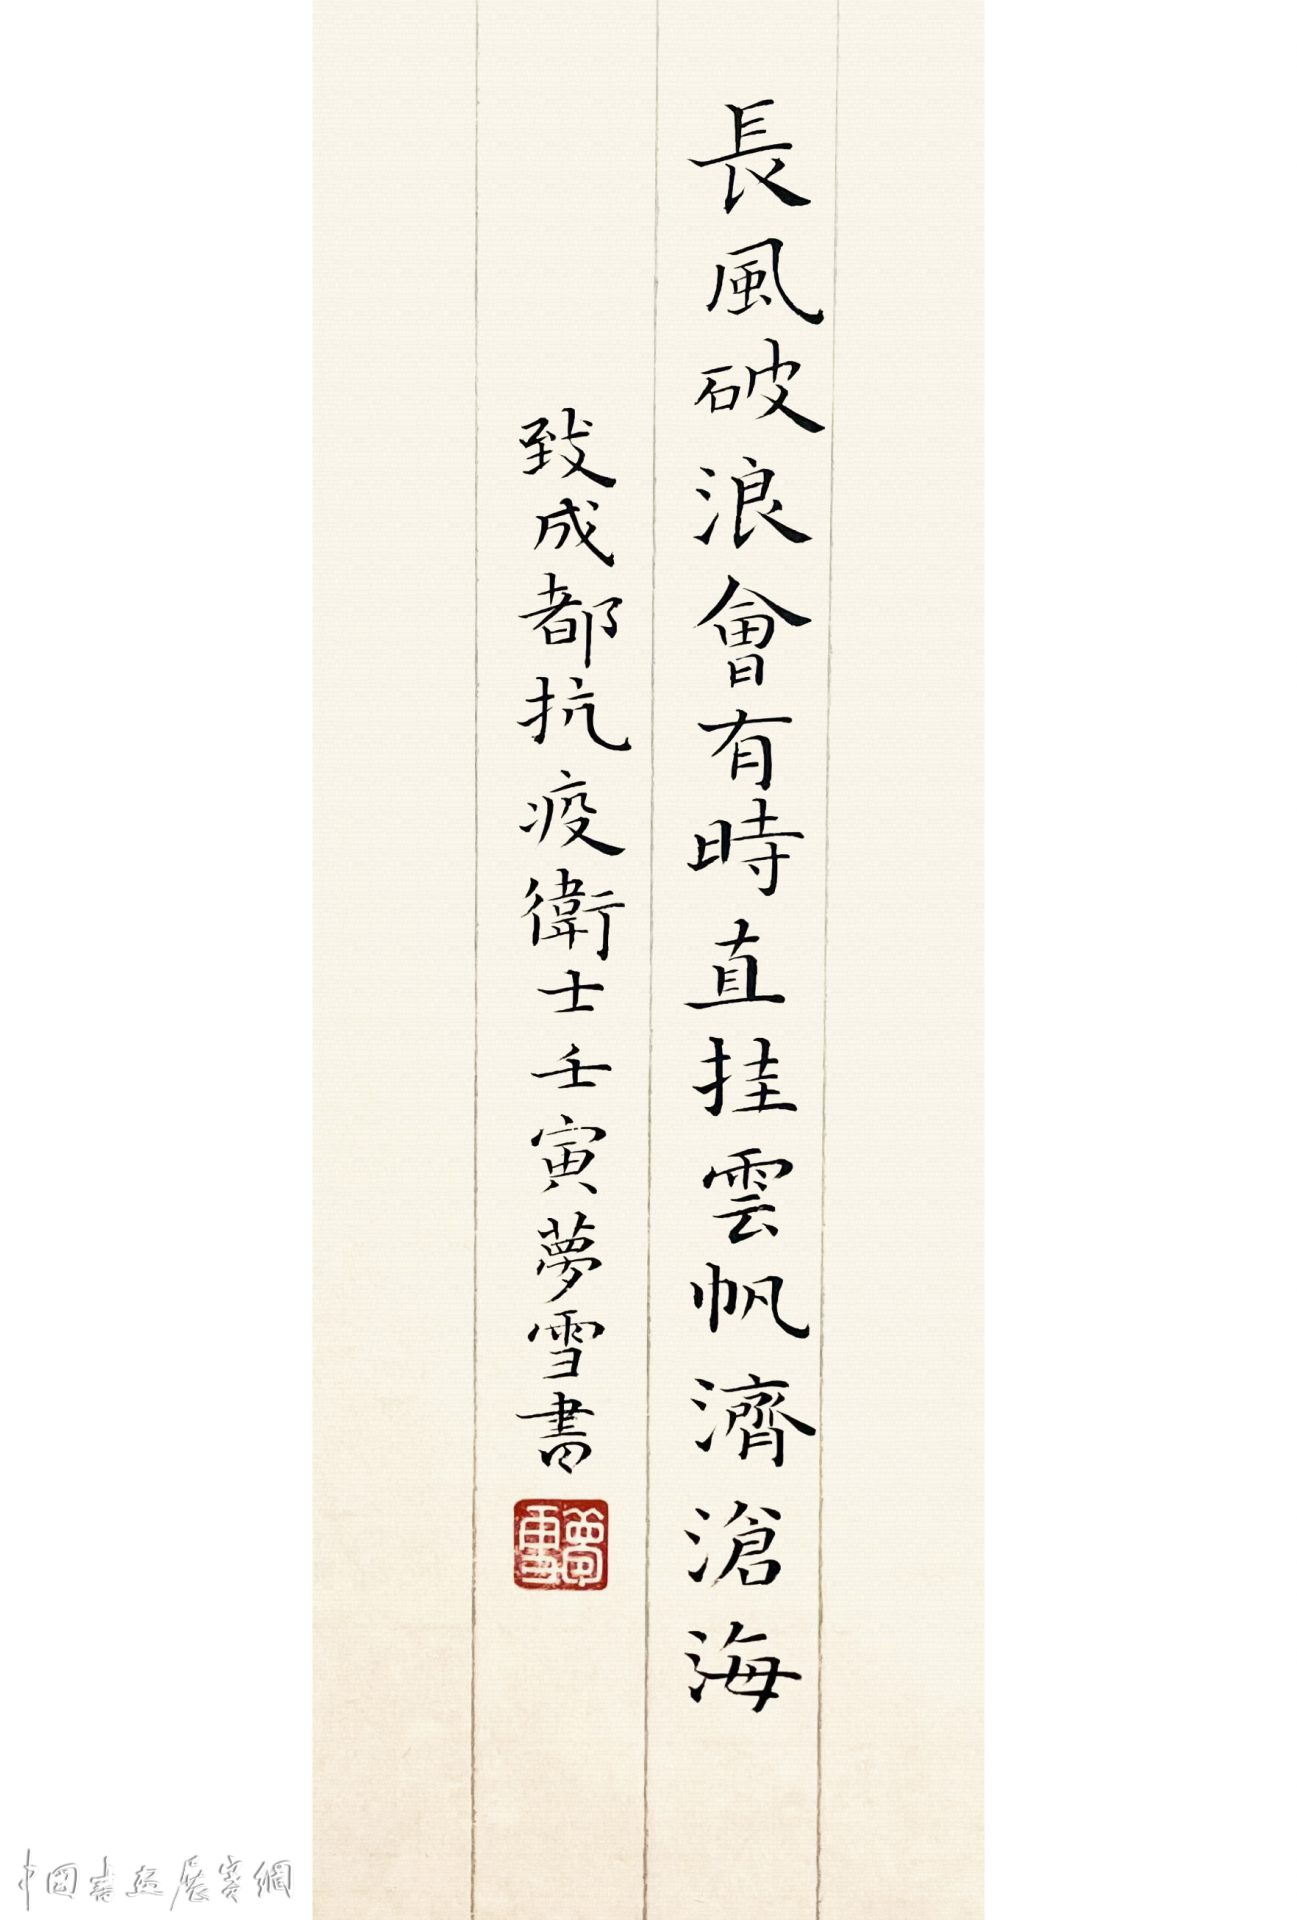 長風破浪會有時直挂雲帆濟滄海
致成都抗疫衛士壬寅夢雪書
夢雪
中國書畫展賽網